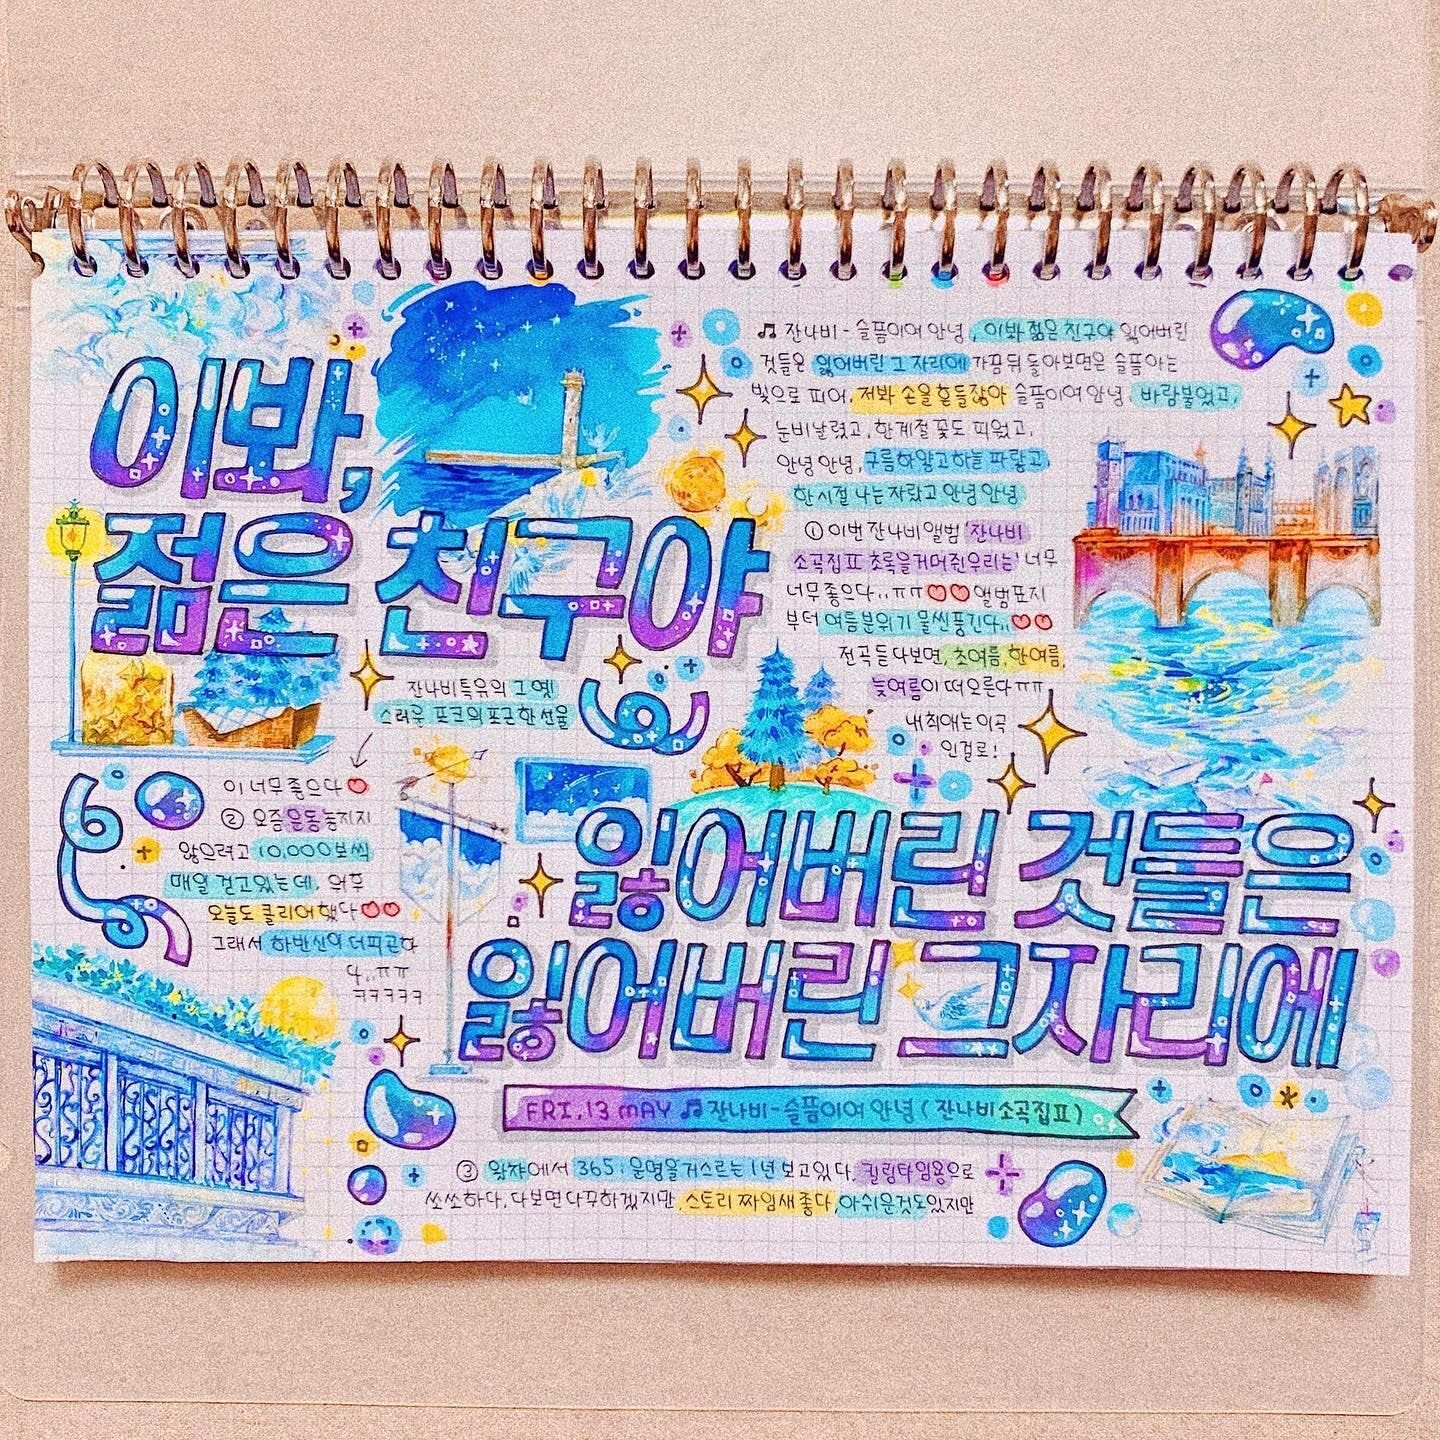 이봐,
젊은 친구야
♫ 잔나비 - 슬픔이여 안녕, 이봐 젊은 친구야 잃어버린
것들은 잃어버린 그 자리에 가끔 뒤 돌아보면은 슬픔 아는
빛으로 피어, 저봐 손을 흔들잖아 슬픔이여 안녕, 바람불었고,
눈비날렸고, 한계절 꽃도 피웠고,
안녕 안녕, 구름하얗고하늘 파랗고,
한 시절 나는 자랐고 안녕 안녕
① 이번 잔나비 앨범 '잔나비
소곡집 Ⅱ 초록을거머쥔우리는' 너무
너무 좋으다..ㅠㅠ♡♡ 앨범표지
부터 여름분위기 물씬풍긴다..♡♡
전곡 듣다보면, 초여름, 한여름,
늦여름이 떠오른다ㅠㅠ
내 최애는 이곡
인걸로!
잔나비특유의 그 옛!
스러운 포크의포근한 선율
이 너무 좋으다♡
② 요즘 운동 놓지지
않으려고 10,000보씩
매일 걷고있는데, 위후
오늘도 클리어했다♡♡
그래서 하반신이 더피곤하
다..ㅠㅠ
ㅋㅋㅋㅋㅋ
잃어버린 것들은
잃어버린 그자리에
FRI, 13 MAY ♫ 잔나비-슬픔이여 안녕 ( 잔나비소곡집Ⅱ )
③ 왓챠에서 365 : 운명을거스르는 1년 보고있다, 킬링타임용으로
쏘쏘하다, 다보면 다꾸하겠지만, 스토리 짜임새 좋다, 아쉬운것도있지만